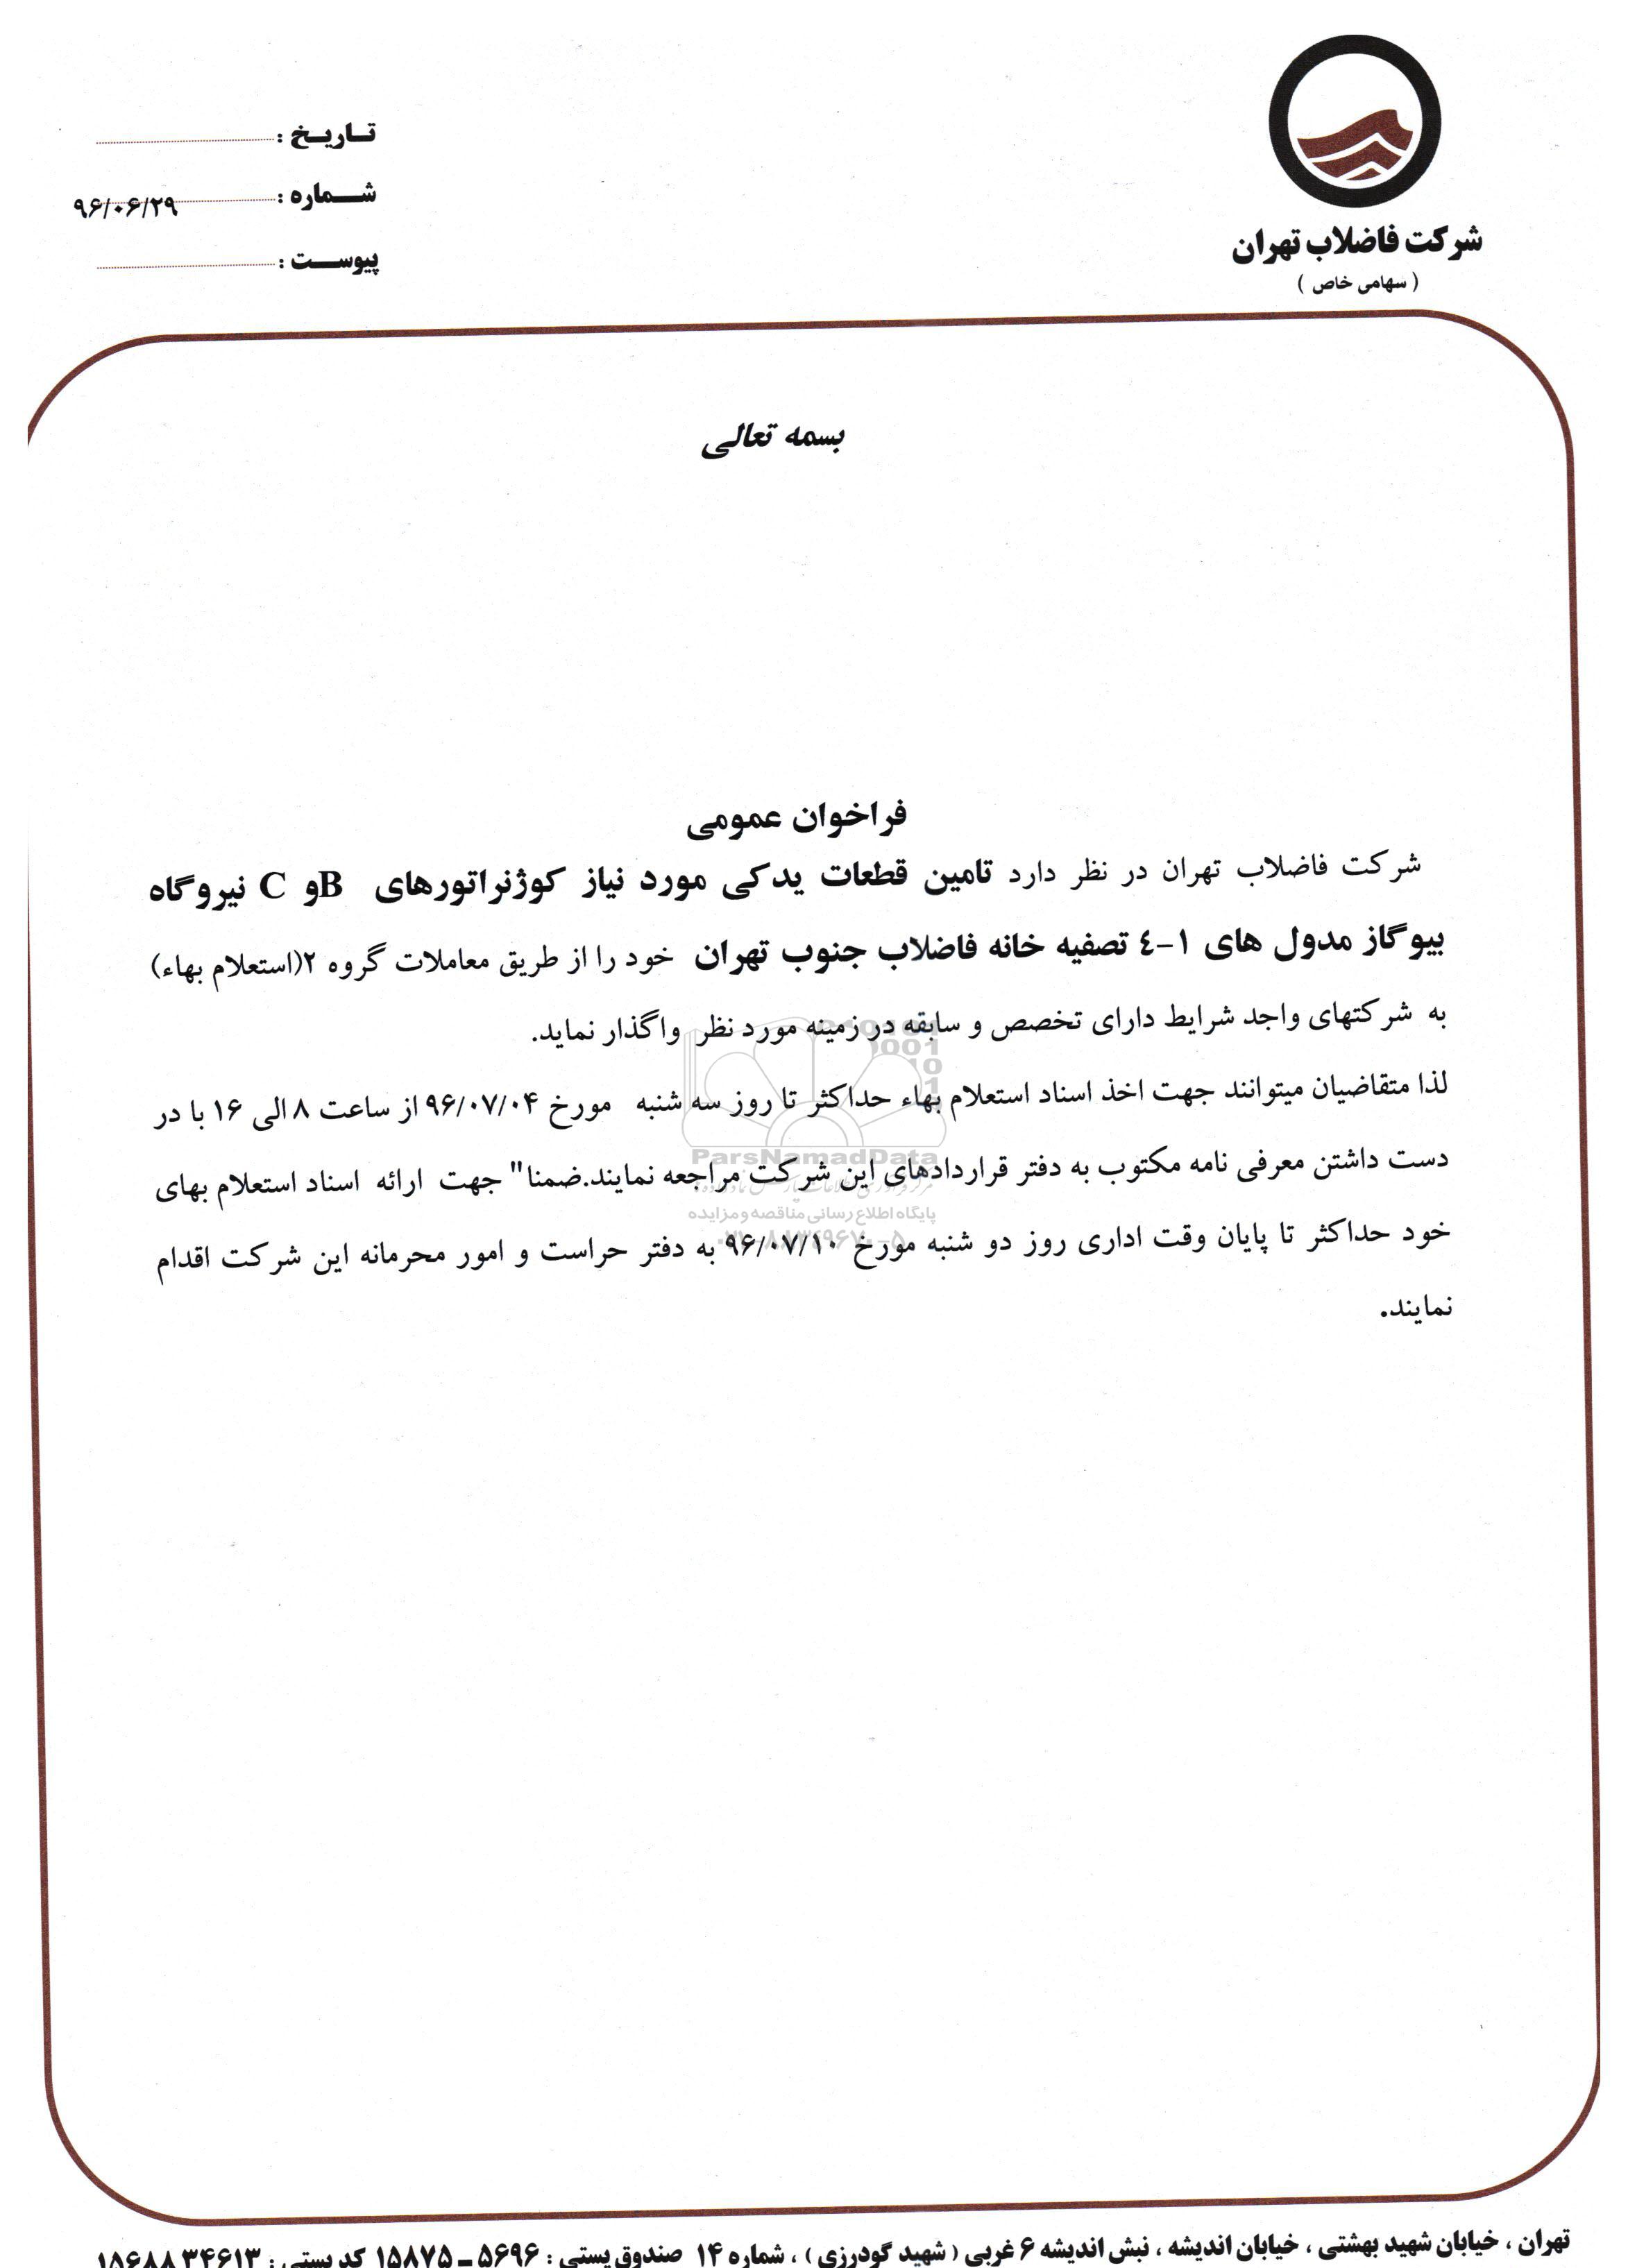 شرکت فاضلاب تهران
( سهامی خاص )
تاریخ :
شماره :
۹۶/۰۶/۲۹
پیوست :
بسمه تعالی
فراخوان عمومی
شرکت فاضلاب تهران در نظر دارد تامین قطعات یدکی مورد نیاز کوژنراتورهای Bو C نیروگاه
بیوگاز مدول های ۱-٤ تصفیه خانه فاضلاب جنوب تهران خود را از طریق معاملات گروه ۲(استعلام بهاء)
به شرکتهای واجد شرایط دارای تخصص و سابقه در زمینه مورد نظر واگذار نماید.
لذا متقاضیان میتوانند جهت اخذ اسناد استعلام بهاء حداکثر تا روز سه شنبه مورخ ۹۶/۰۷/۰۴ از ساعت ۸ الی ۱۶ با در
دست داشتن معرفی نامه مکتوب به دفتر قراردادهای این شرکت مراجعه نمایند.ضمنا" جهت ارائه اسناد استعلام بهای
خود حداکثر تا پایان وقت اداری روز دو شنبه مورخ ۹۶/۰۷/۱۰ به دفتر حراست و امور محرمانه این شرکت اقدام
نمایند.
ParsNamadData
پایگاه اطلاع رسانی مناقصه و مزایده
تهران ، خیابان شهید بهشتی ، خیابان اندیشه ، نبش اندیشه ۶ غربی ( شهید گودرزی ) ، شماره ۱۴ صندوق پستی : ۵۶۹۶ ــ ۱۵۸۷۵ کد پستی : ۱۵۶۸۸۳۴۶۱۳